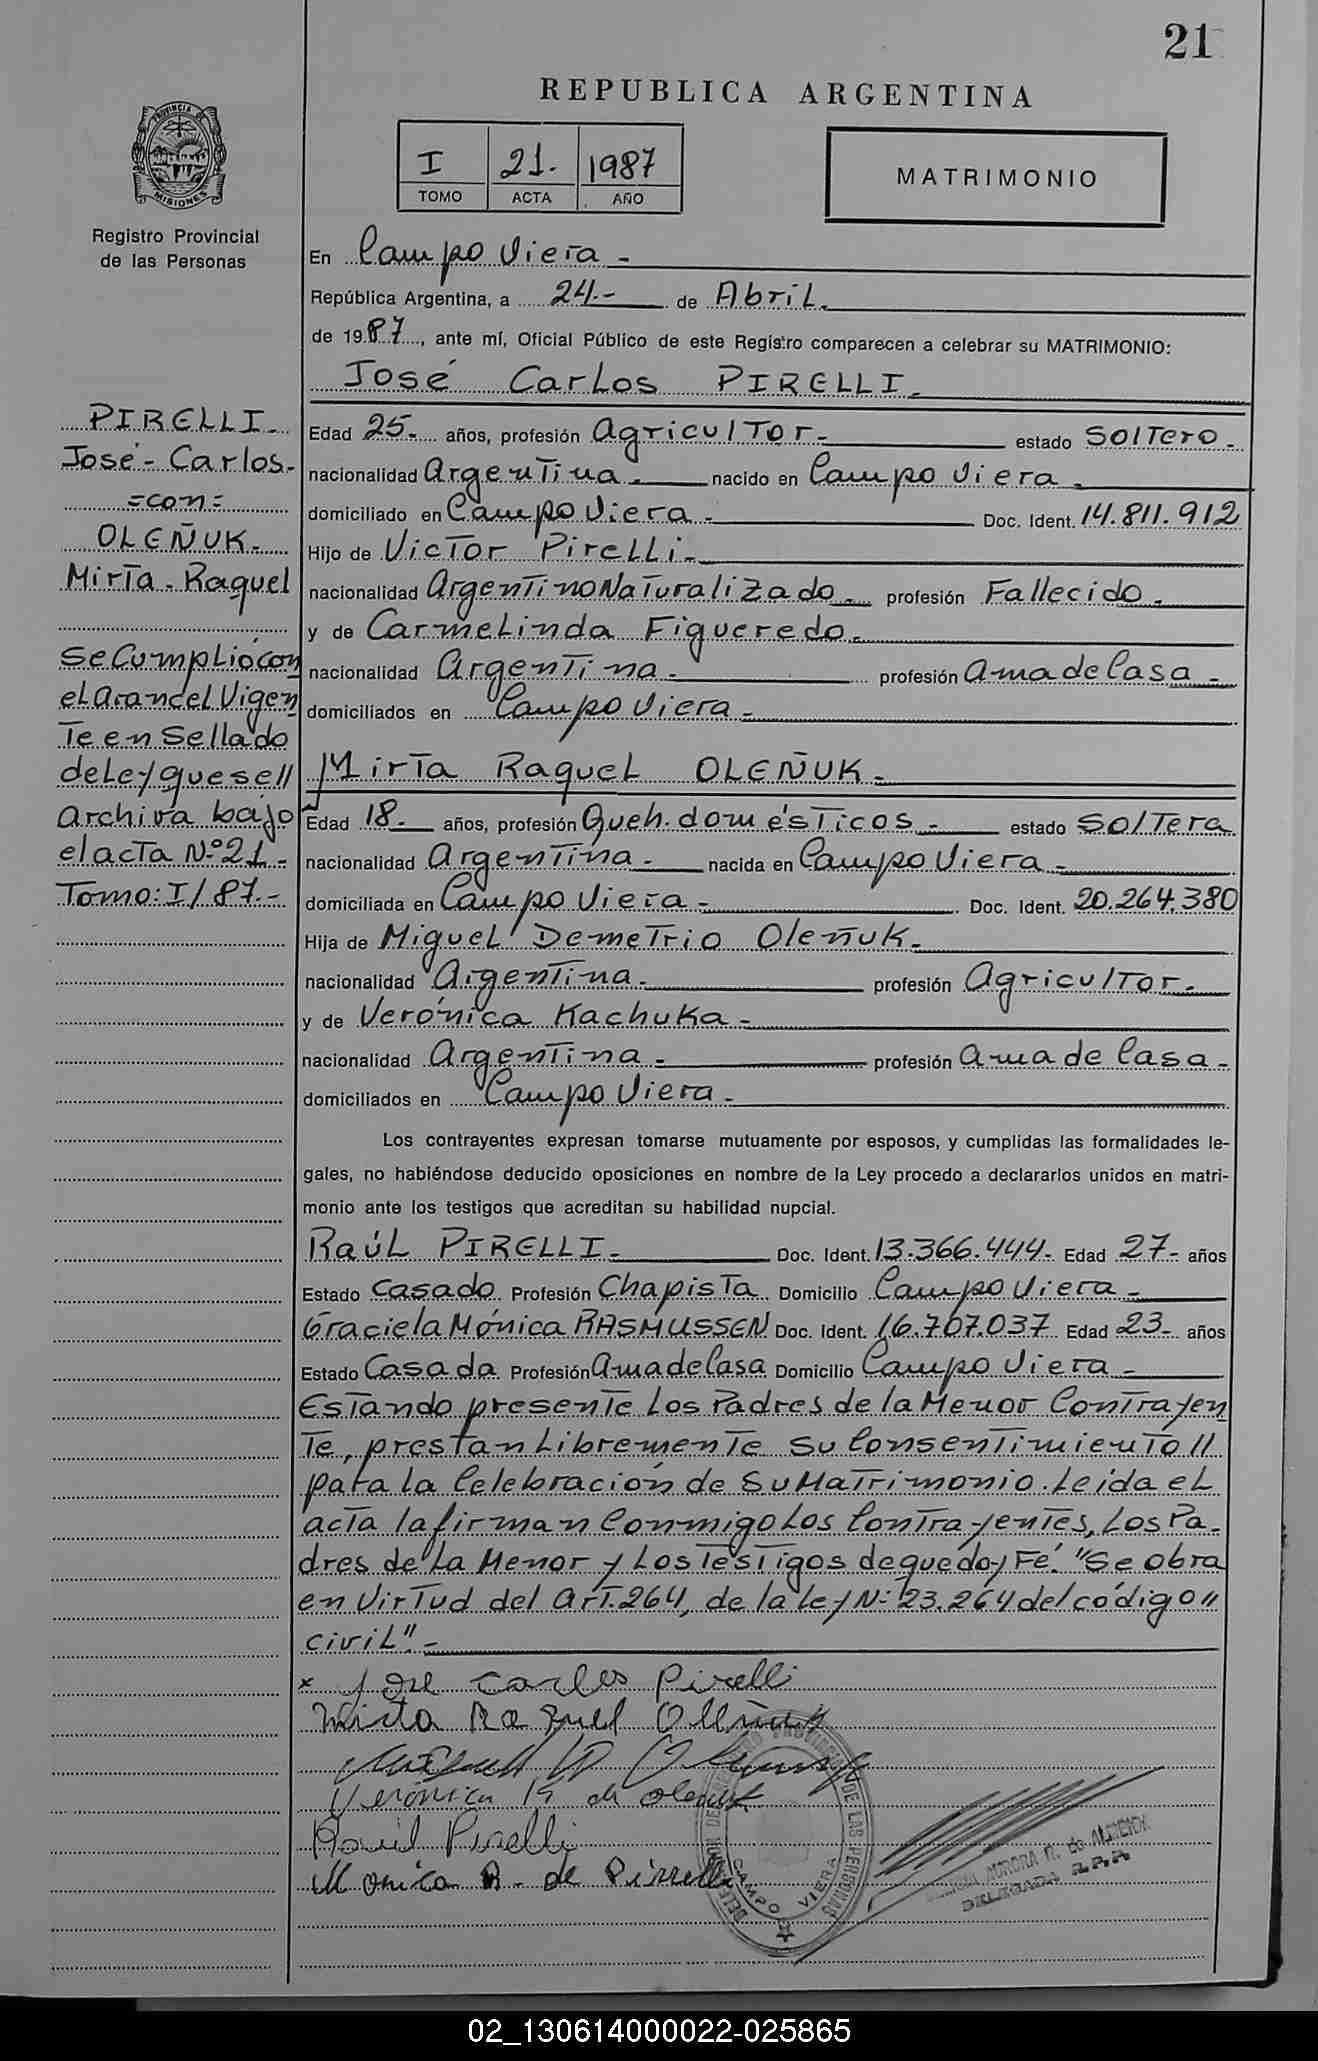 21
REPUBLICA ARGENTINA
PROVINCIA DE
MISIONES
I 21.- 1987
TOMO ACTA AÑO
MATRIMONIO
Registro Provincial
de las Personas
En Campo Viera -
República Argentina, a 24.- de Abril.
de 1987, ante mí, Oficial Público de este Registro comparecen a celebrar su MATRIMONIO:
José Carlos PIRELLI.
PIRELLI.
José- Carlos-
=con=
OLEÑUK.
Mirta- Raquel
Se Cumplió con
el arancel Vigen
te en Sellado
de Ley que se //
archiva bajo
el acta N:º 21-
Tomo: I/87.-
Edad 25.- años, profesión Agricultor- estado Soltero-
nacionalidad Argentina.- nacido en Campo Viera.
domiciliado en Campo Viera- Doc. Ident. 14.811.912
Hijo de Victor Pirelli-
nacionalidad Argentino Naturalizado.- profesión Fallecido.
y de Carmelinda Figueredo.
nacionalidad Argentina.- profesión ama de Casa-
domiciliados en Campo Viera-
Mirta Raquel OLEÑUK-
Edad 18.- años, profesión Queh. domésticos- estado Soltera
nacionalidad Argentina.- nacida en Campo Viera-
domiciliada en Campo Viera- Doc. Ident. 20.264.380
Hija de Miguel Demetrio Oleñuk.
nacionalidad Argentina.- profesión Agricultor.-
y de Verónica Kachuka-
nacionalidad Argentina.- profesión ama de Casa-
domiciliados en Campo Viera-
Los contrayentes expresan tomarse mutuamente por esposos, y cumplidas las formalidades le-
gales, no habiéndose deducido oposiciones en nombre de la Ley procedo a declararlos unidos en matri-
monio ante los testigos que acreditan su habilidad nupcial.
Raúl PIRELLI.- Doc. Ident. 13.366.444- Edad 27- años
Estado Casado Profesión Chapista Domicilio Campo Viera-
Graciela Mónica RASMUSSEN Doc. Ident. 16.707.037 Edad 23- años
Estado Casada Profesión ama de Casa Domicilio Campo Viera-
Estando presente Los Padres de la Menor Contrayen
te, prestan Libremente su Consentimiento //
para la Celebración de Su Matrimonio. Leida el
acta la firman Conmigo Los Contrayentes, Los Pa-
dres de La Menor y Los Testigos de que doy Fé. "Se obra
en Virtud del Art. 264, de la Ley N:º 23.264 del código //
civil".-
x José Carlos Pirelli
Mirta Raquel Olleñuk
Verónica K de Oleñuk
Raúl Pirelli
Monica R. de Pirrelli
REGISTRO PROVINCIAL DE LAS PERSONAS
CAMPO VIERA
AURORA
DELEGADA R.P.P.
02_130614000022-025865